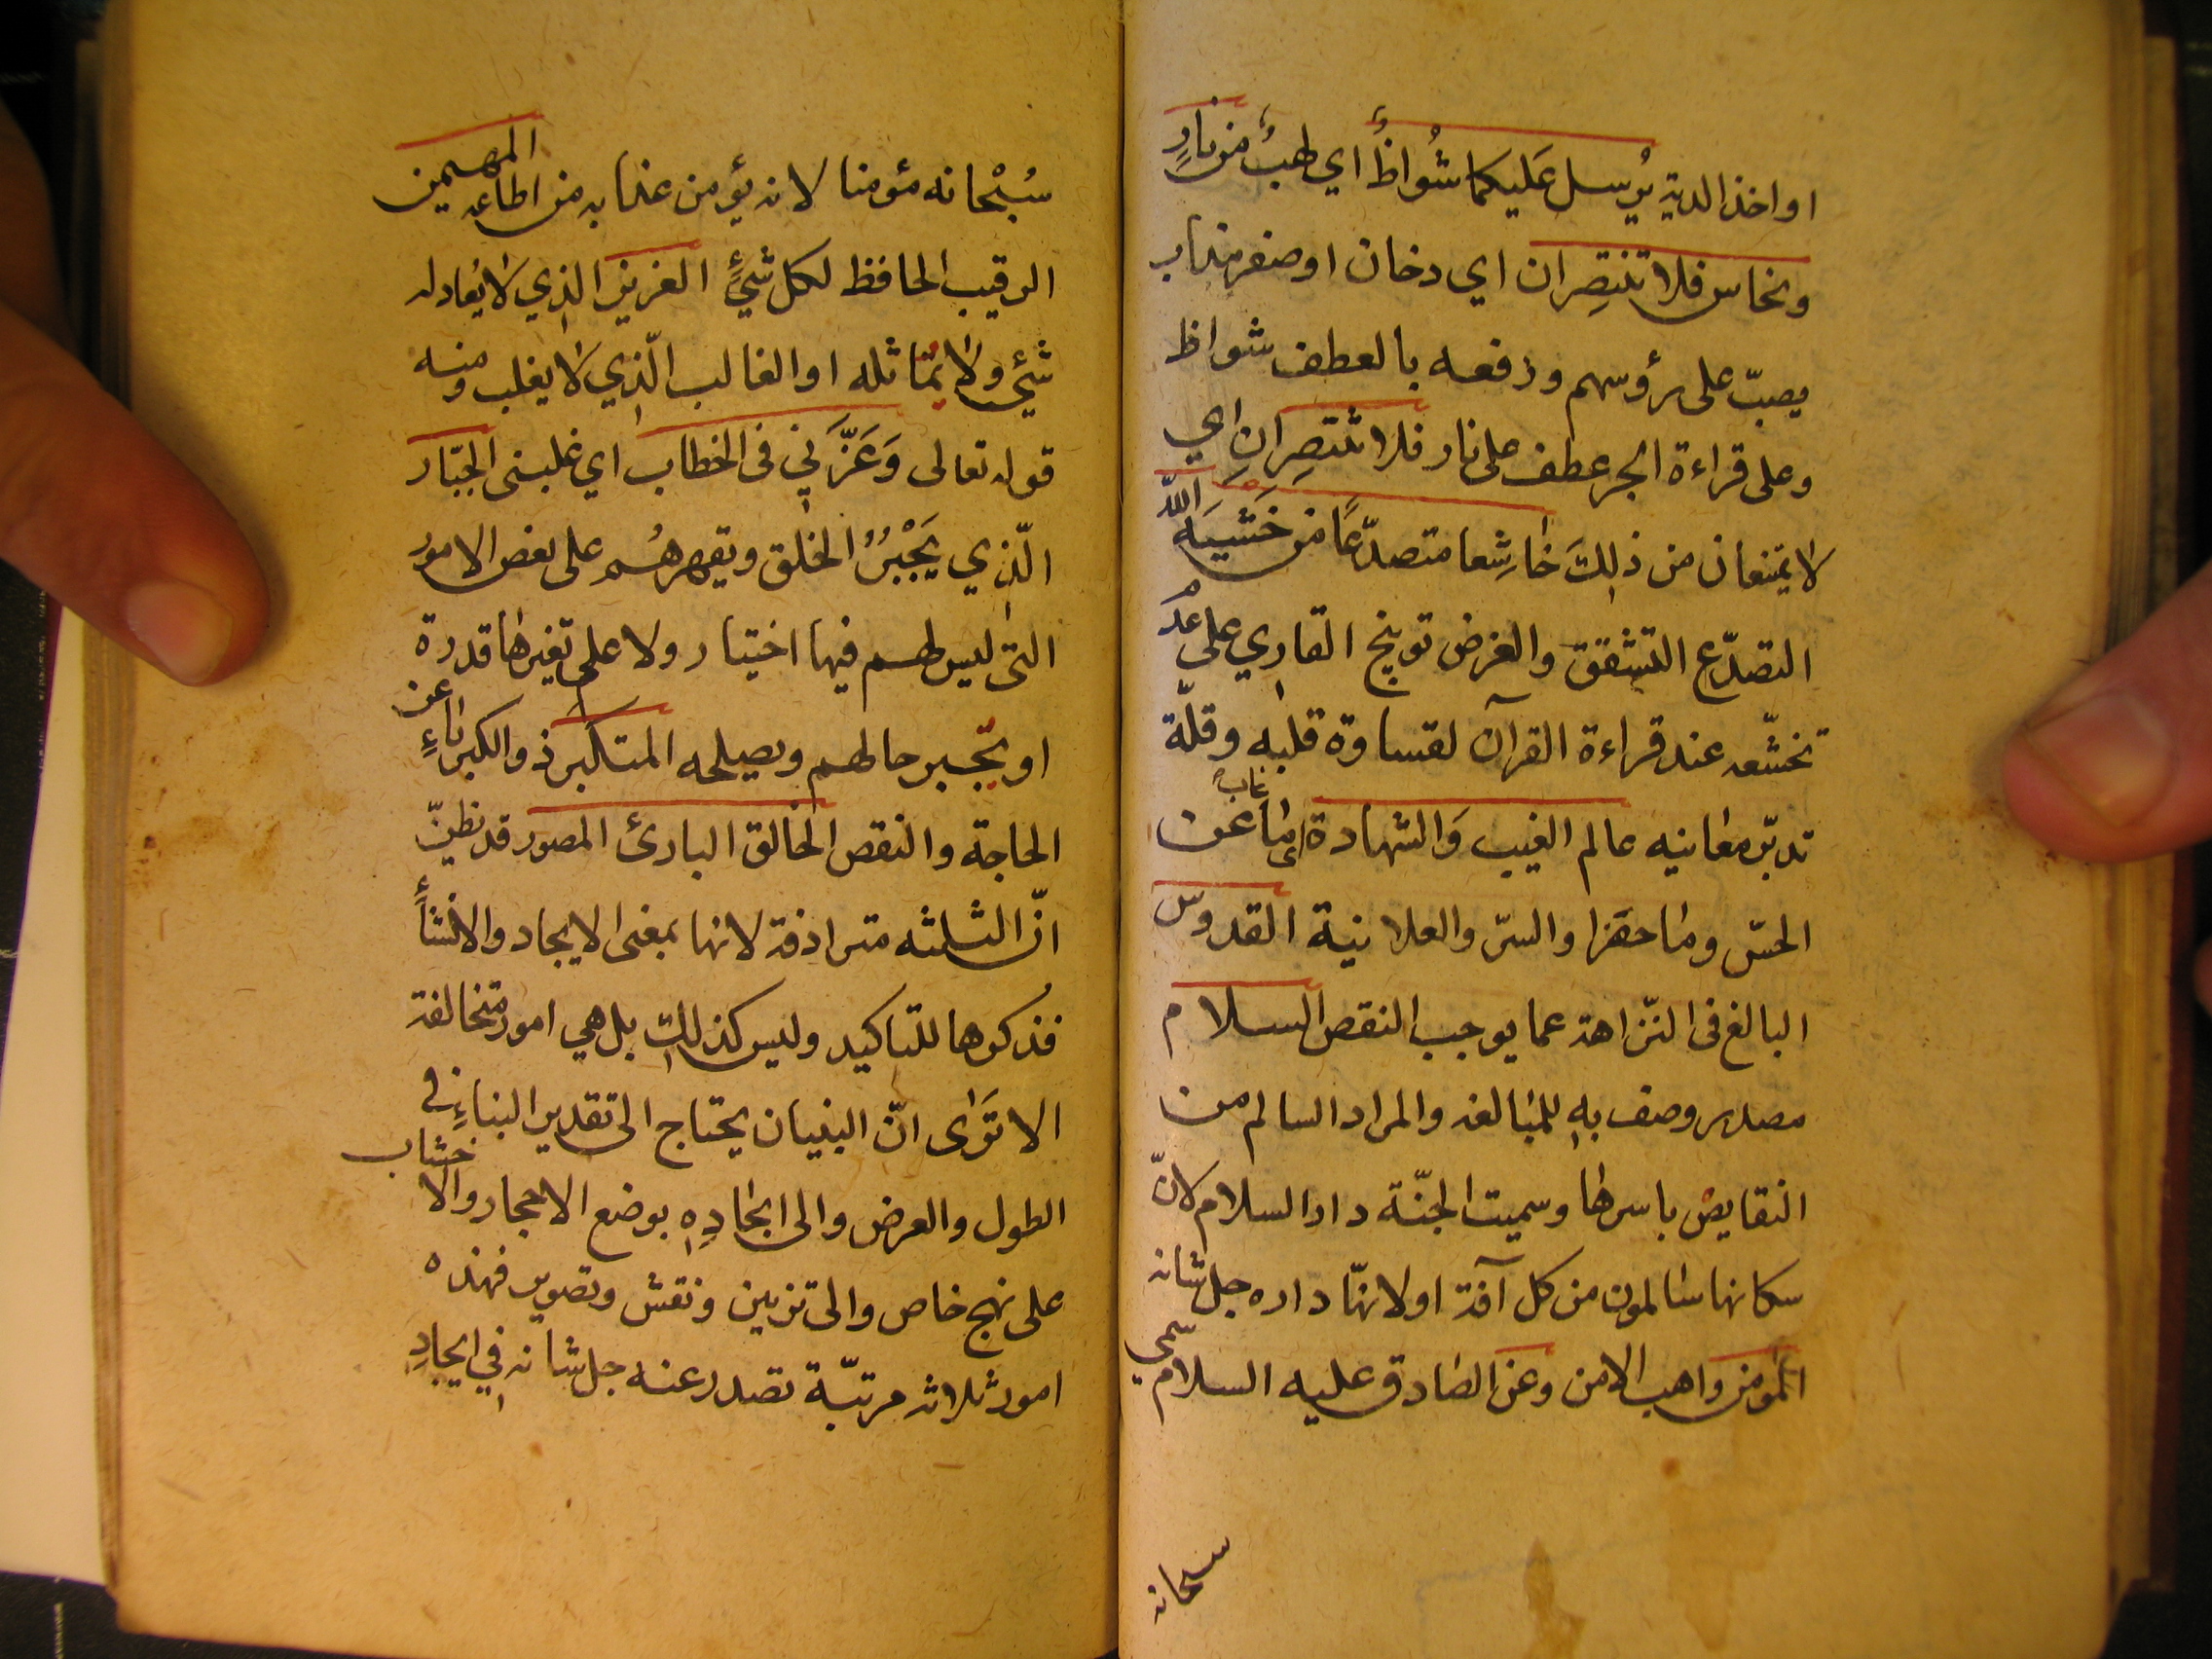 او اخذ الدية يُرسل عَليكما شُواظٌ اي لهبٌ من نارٍ
ونحاس فلا تنتصِران اي دخان او صفر مذاب
يصبّ على رؤوسهم ورفعه بالعطف شواظ
وعلى قراءة الجر عطف على نار فلا تنتصِرانِ اي
لا يمتنعان من ذلِكَ خاشِعا متصدّعًا من خَشيَةِ اللّه
التصدّع التشقق والغرض توبيخ القارِي على عدم
تخشّعه عند قراءة القرآن لقساوة قلبِه وقلّة
تدبّر معانيه عالم الغيب وَالشهادة اي ما غاب عن
الحسّ وما حضر او السرّ والعلانية القدوس
البالغ فى النّزاهة عما يوجب النقص السلام
مصدر وصف بِه للمبالغة والمراد السالم من
النقايص باسرها وسميت الجنّة دار السلام لانّ
سكانها سالمون من كل آفة او لانّها داره جل شانه
المؤمن واهب الامن وعن الصادق عليه السلام سمّي
سبحانه
سُبْحانه مؤمنا لانه يؤمن عذابه من اطاعه المهيمن
الرقيب الحافظ لكل شيءٍ العزيز الذِي لا يُعادله
شئي ولا يُماثله او الغالب الّذِي لا يغلب ومنه
قوله تعالى وَعَزَّنِي فى الخطاب اي غلبنى الجبّار
الّذِي يَجْبرُ الخلق ويقهرهُم على بعض الامور
التى ليس لهم فيها اختيار ولا على تغيرها قدرة
او يجبر حالهم ويصلحه المتكبر ذو الكبرياءِ عن
الحاجة والنقص الخالق البارئ المصور قد يظنّ
انّ الثلثه مترادفة لانها بمعنى الايجاد والانشأءِ
فذكروها للتاكيد وليس كذلِك بل هي امور متخالفة
الا تَرَى انّ البنيان يحتاج الى تقدير البناءِ في
الطول والعرض والى ايجادِهِ بوضع الاحجار والاخشاب
على نهج خاص والى تزيين ونقش وتصوير فهذه
امور ثلاثه مرتبّة تصدر عنه جل شانه في ايجادِ